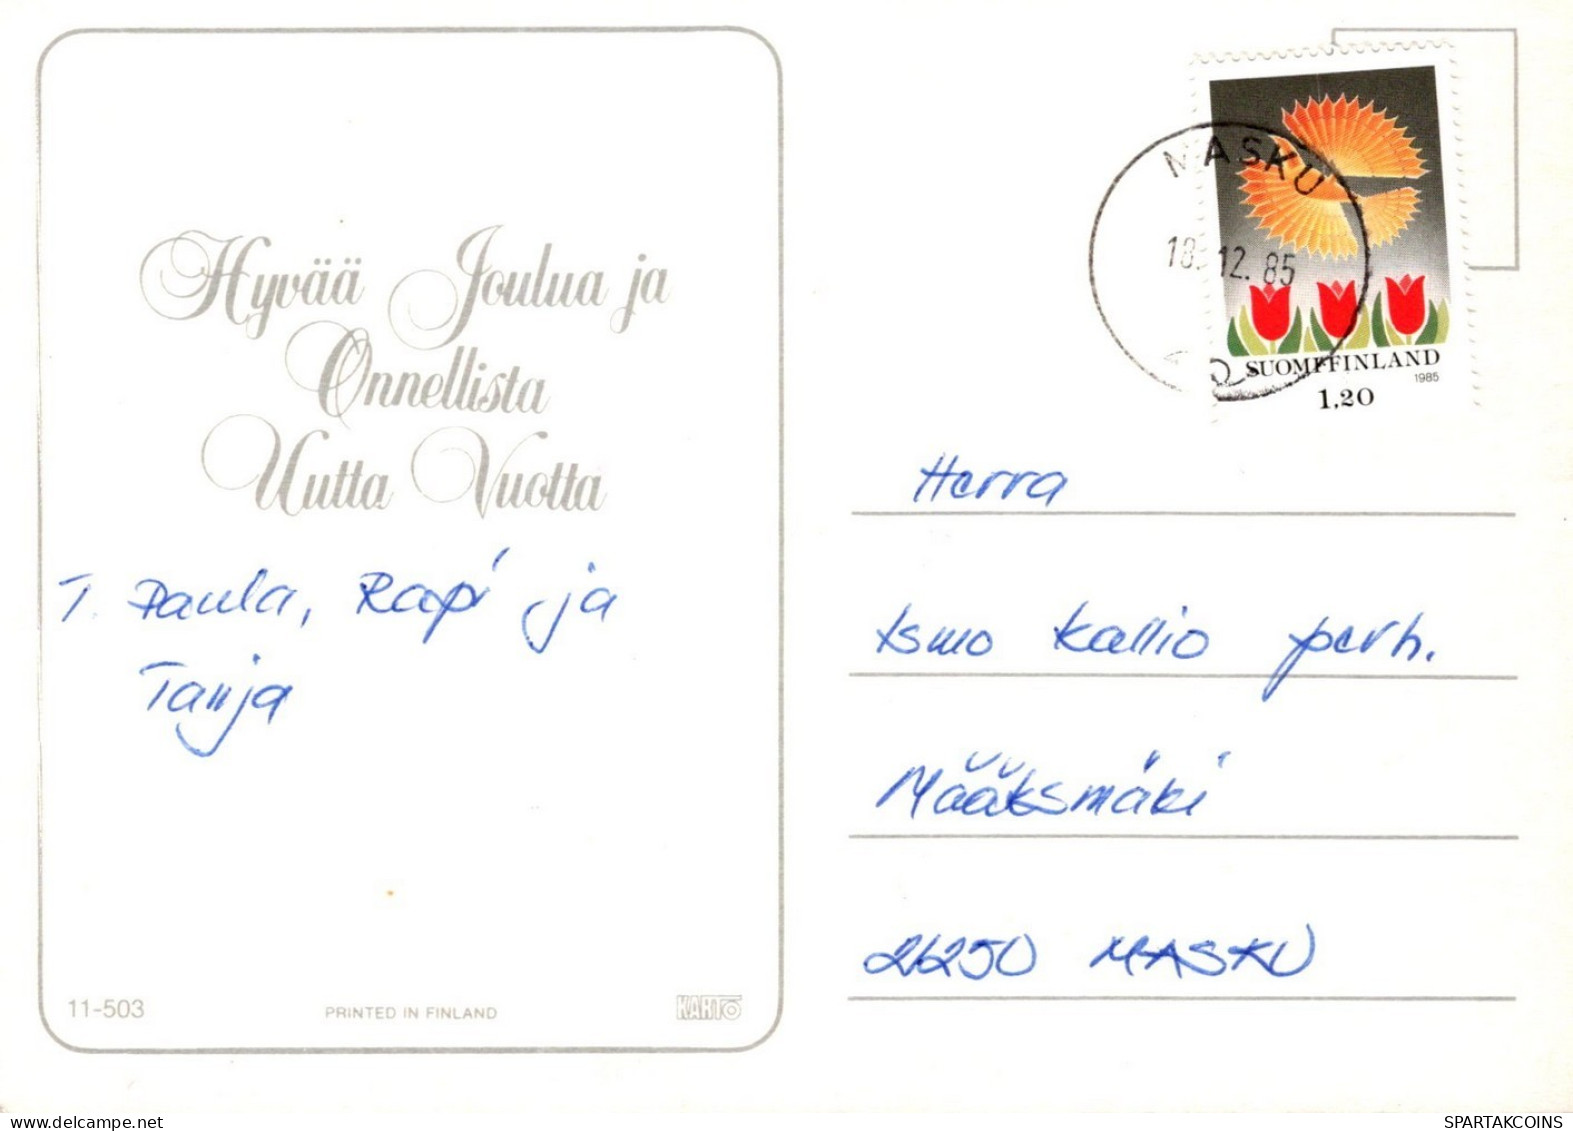 Hyvää Joulua ja
Onnellista
Uutta Vuotta
T. Paula, Rapi ja
Tanja
11-503
PRINTED IN FINLAND
KARTO
MASKU
18.12.85
SUOMI FINLAND
1985
1,20
Herra
Ismo Kallio perh.
Määksmäki
21250 MASKU
SPARTAKCOINS